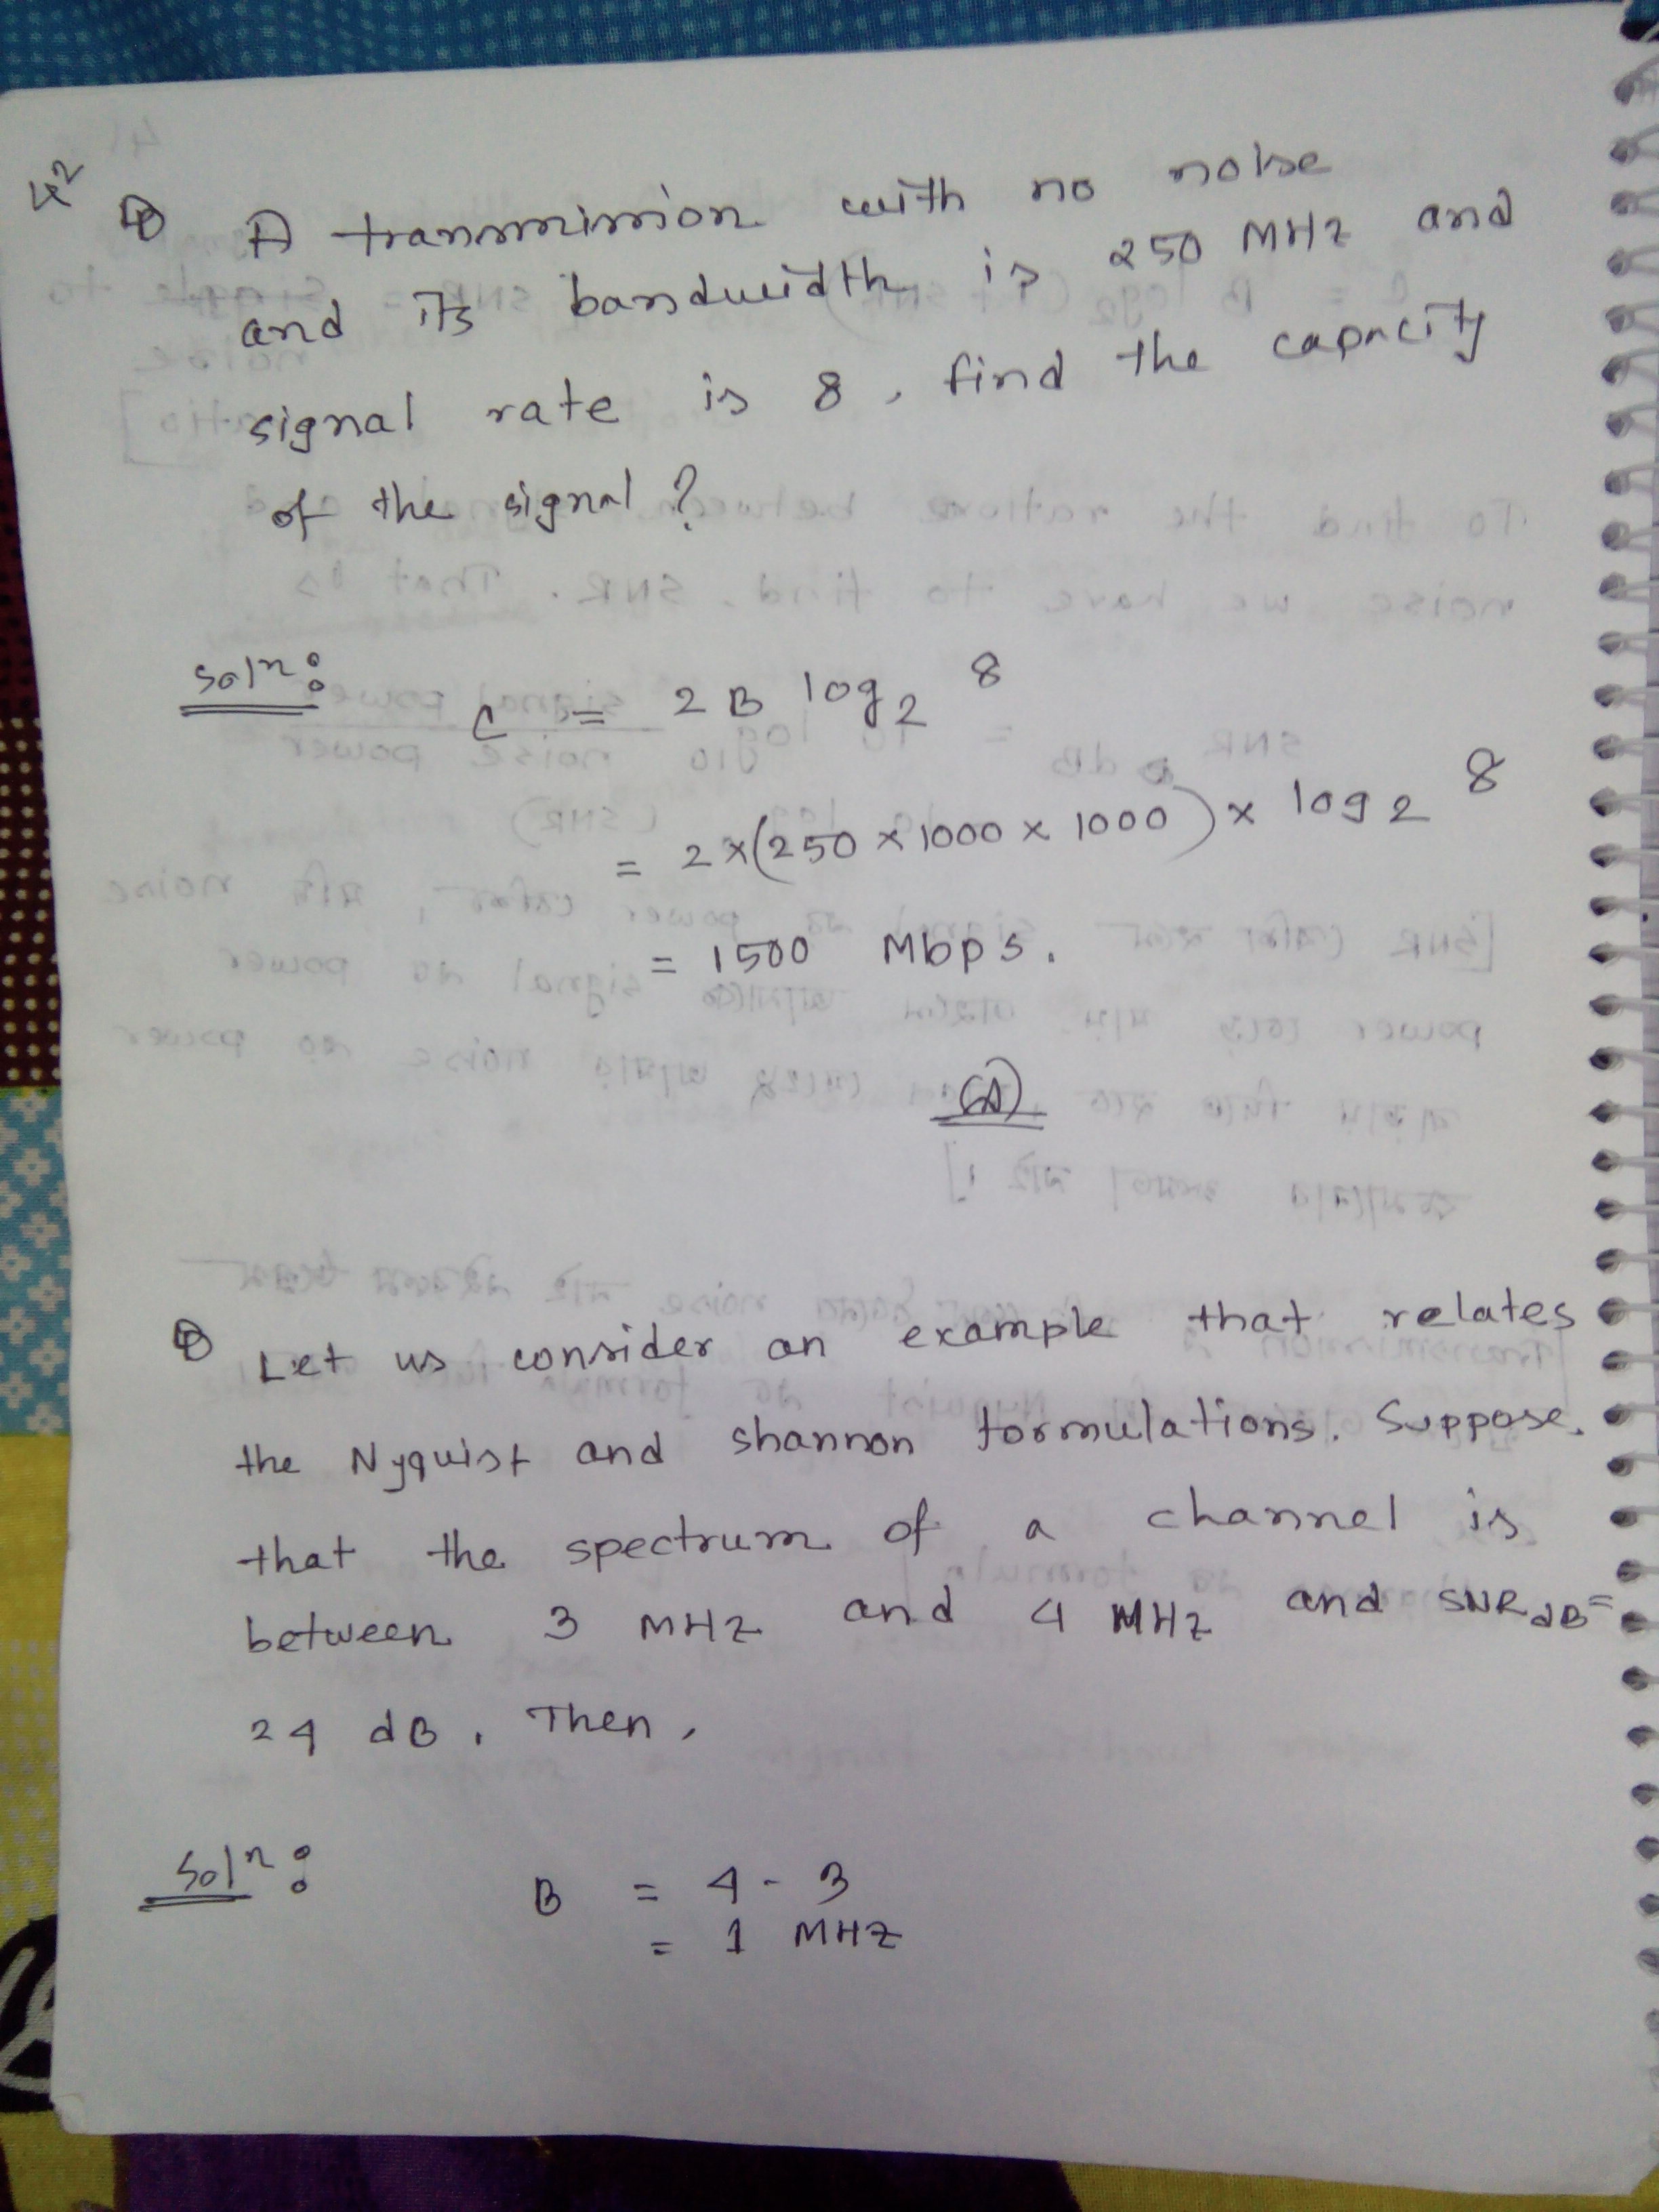 A transmission with no noise
and its bandwidth is 250 MHz and
signal rate is 8, find the capacity
of the signal?
Solⁿ:
C = 2B log₂ 8
= 2×(250 × 1000 × 1000) × log₂ 8
= 1500 Mbps.
Let us consider an example that relates
the Nyquist and shannon formulations. Suppose.
that the spectrum of a channel is
between 3 MHz and 4 MHz and SNR dB =
24 dB. Then,
Solⁿ:
B = 4 - 3
= 1 MHz